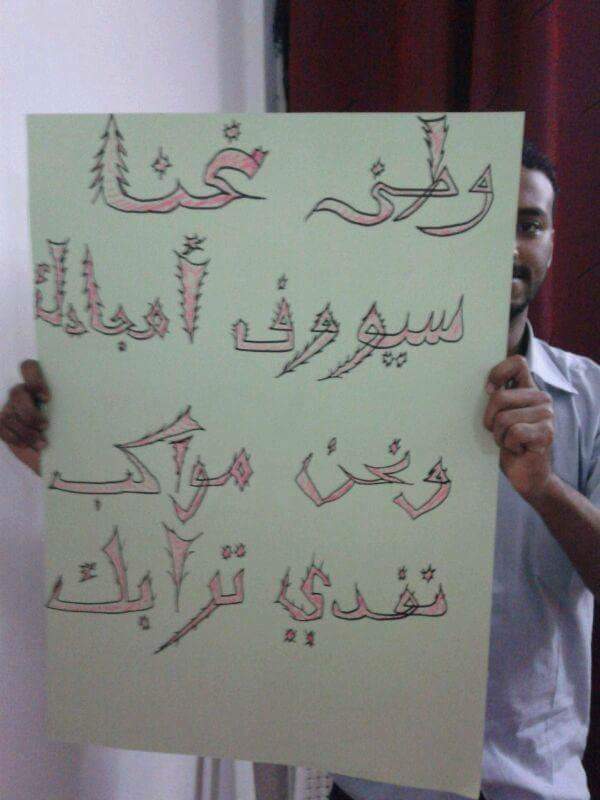 وطن غنا
سيوف أمجادك
ونحن مواكب
تفدي ترابك